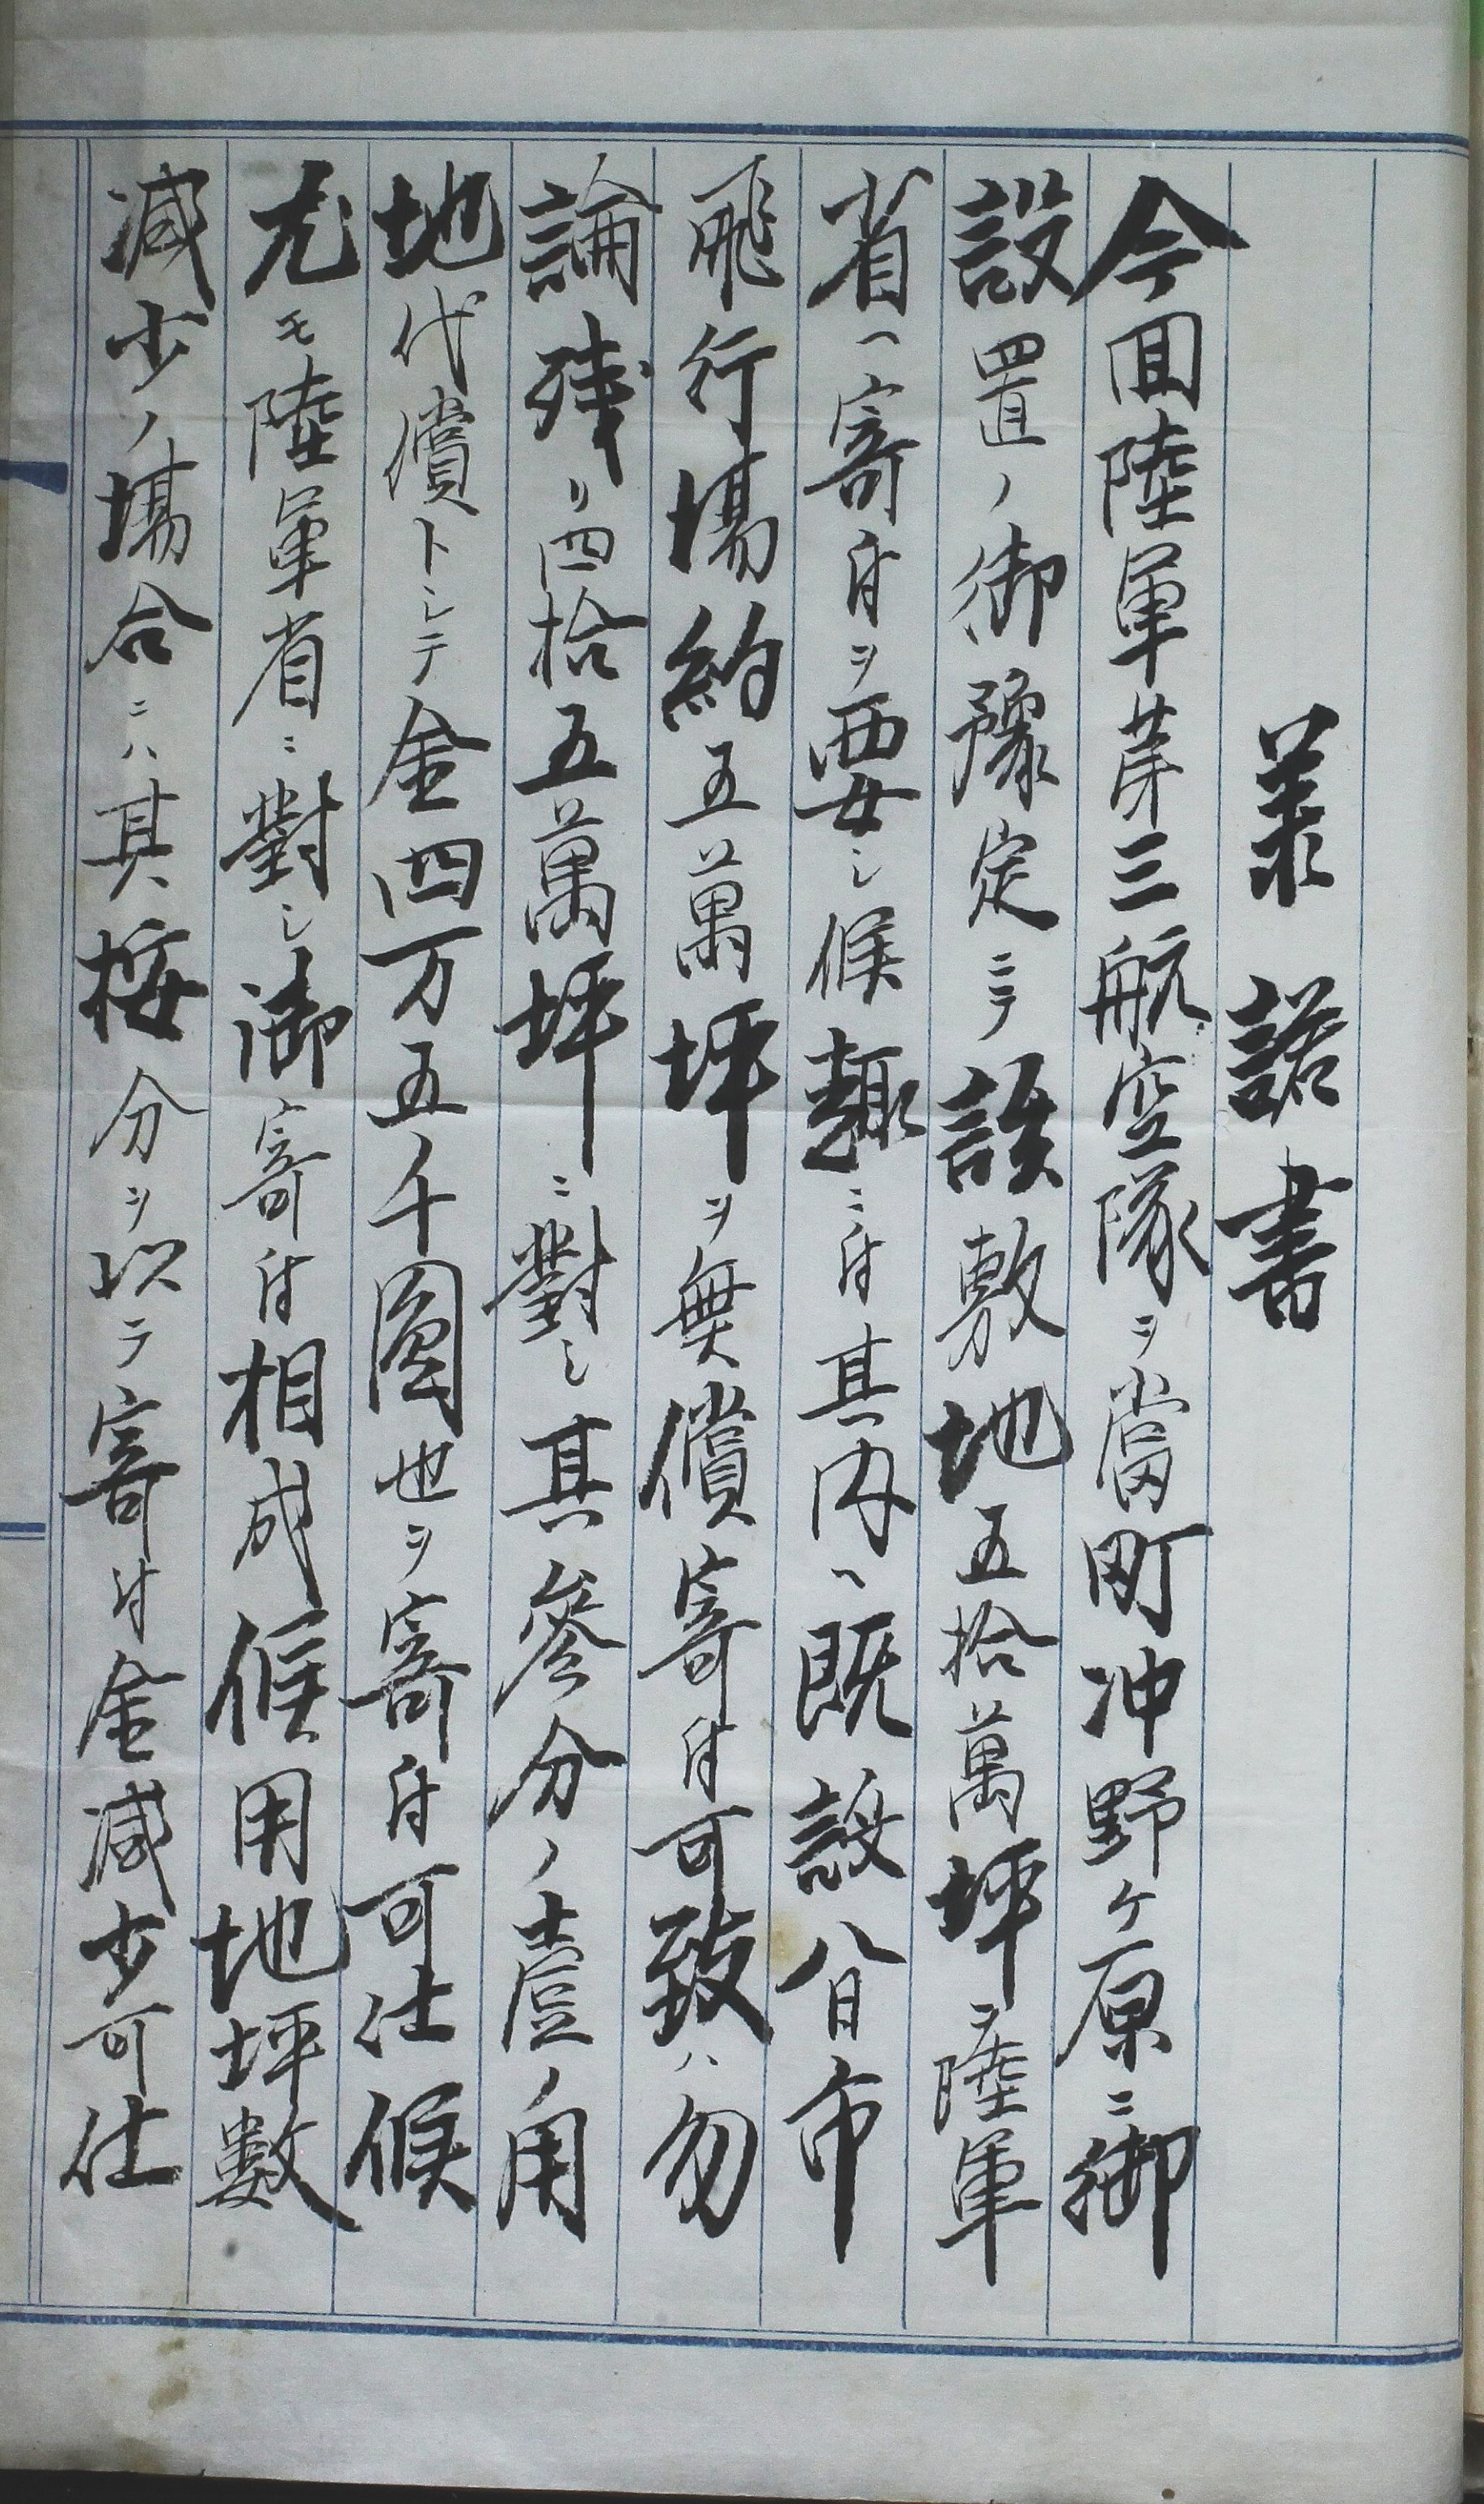 承諾書
今回陸軍第三航空隊ヲ當町沖野ケ原ニ御
設置ノ御豫定ニテ該敷地五拾萬坪ヲ陸軍
省ヘ寄付ヲ要シ候趣ニ付其内ヘ既設八日市
飛行場約五萬坪ヲ無償寄付可致ハ勿
論残リ四拾五萬坪ニ對シ其參分ノ壹ノ用
地代償トシテ金四万五千圓也ヲ寄付可仕候
尤モ陸軍省ニ對シ御寄付相成候用地坪數
減少ノ場合ニハ其按分ヲ以テ寄付金減少可仕